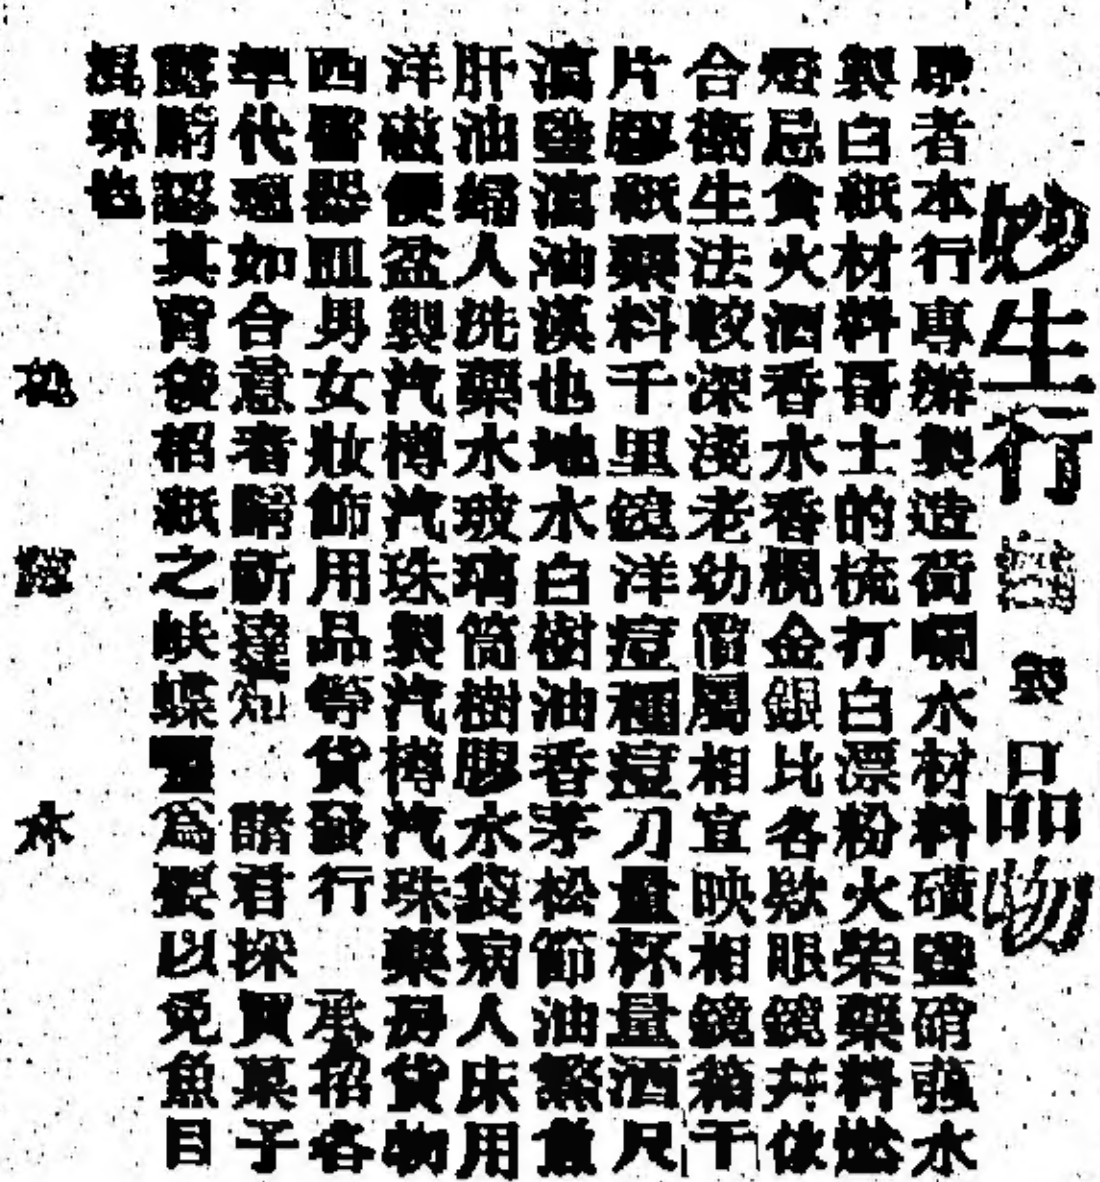 妙生行製口品物
者本行專辦製造荷囒水材料磺鹽硝強水
製白紙材料哥士的梳打白漂粉火柴藥料燃
燈忌食火酒香水香梘金銀比各眼鏡并做
合衛生法較深淺老幼價屬相宜映相鏡箱干
片膠紙藥料千里鏡洋痘種痘刀量杯量酒尺
油漢也地水白樹油香茅松節油
肝油婦人洗藥水玻璃筒樹膠水袋病人床用
洋磁便盆製汽樽汽珠製汽樽汽珠藥房貨物
西醫器皿男女妝飾用品等貨發行 承招各
代如合意者請達知 諸君採買菓子
露請認真背後招紙之蚨蝶嘜為要以免魚目
混珠也